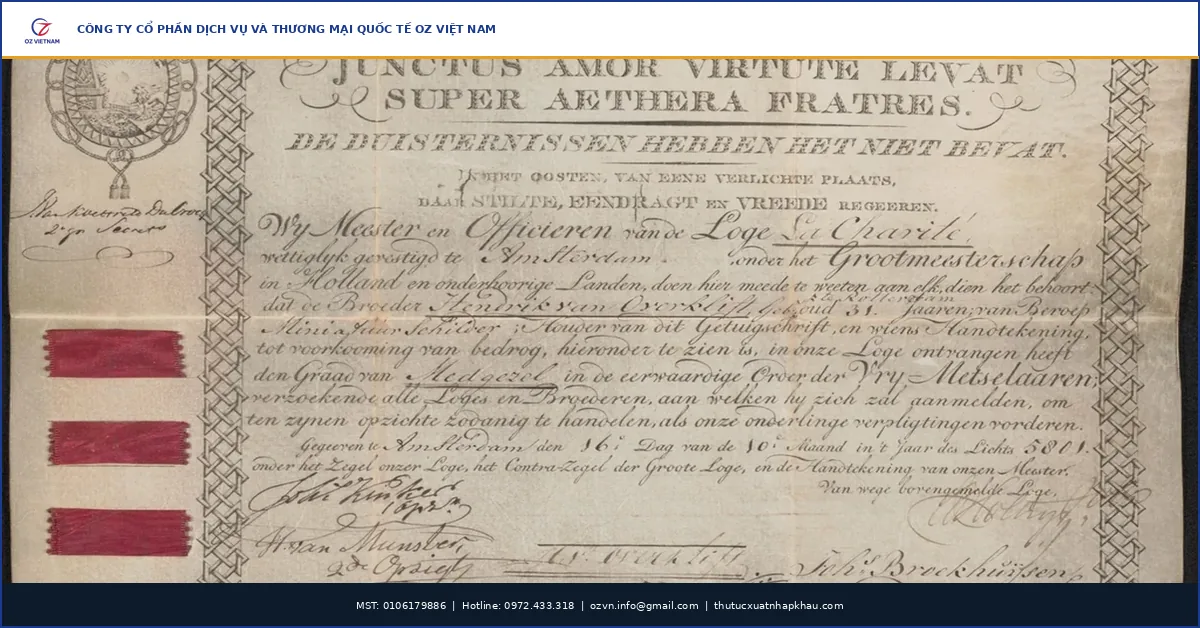 OZ VIETNAM
CÔNG TY CỔ PHẦN DỊCH VỤ VÀ THƯƠNG MẠI QUỐC TẾ OZ VIỆT NAM
JUNCTUS AMOR VIRTUTE LEVAT
SUPER AETHERA FRATRES.
DE DUISTERNISSEN HEBBEN HET NIET BEVAT.
IN HET OOSTEN, VAN EENE VERLICHTE PLAATS,
DAAR STILTE, EENDRAGT EN VREEDE REGEEREN.
Wy Meester en Officieren van de Loge La Charité,
wettiglyk gevestigd te Amsterdam onder het Grootmeesterschap
in Holland en onderhoorige Landen, doen hier meede te weeten aan elk, dien het behoort
dat de Broeder Hendrik van Overklift, te Rotterdam oud 31. Jaaren, van Beroep
Miniatuur Schilder ; Houder van dit Getuigschrift, en wiens Handtekening,
tot voorkooming van bedrog, hieronder te zien is, in onze Loge ontvangen heeft
den Graad van Medgezel in de eerwaardige Order der Vry-Metselaaren;
verzoekende alle Loges en Broederen, aan welken hy zich zal aanmelden, om
ten zynen opzichte zodanig te handelen, als onze onderlinge verpligtingen vorderen.
Gegeeven te Amsterdam den 16e Dag van de 10e Maand in 't Jaar des Lichts 5801.
onder het Zegel onzer Loge, het Contra-Zegel der Groote Loge, en de Handtekening van onzen Meester.
Van wege bovengemelde Loge,
H. van Munster
Joh.s Broekhuijsen
MST: 0106179886 | Hotline: 0972.433.318 | ozvn.info@gmail.com | thutucxuatnhapkhau.com